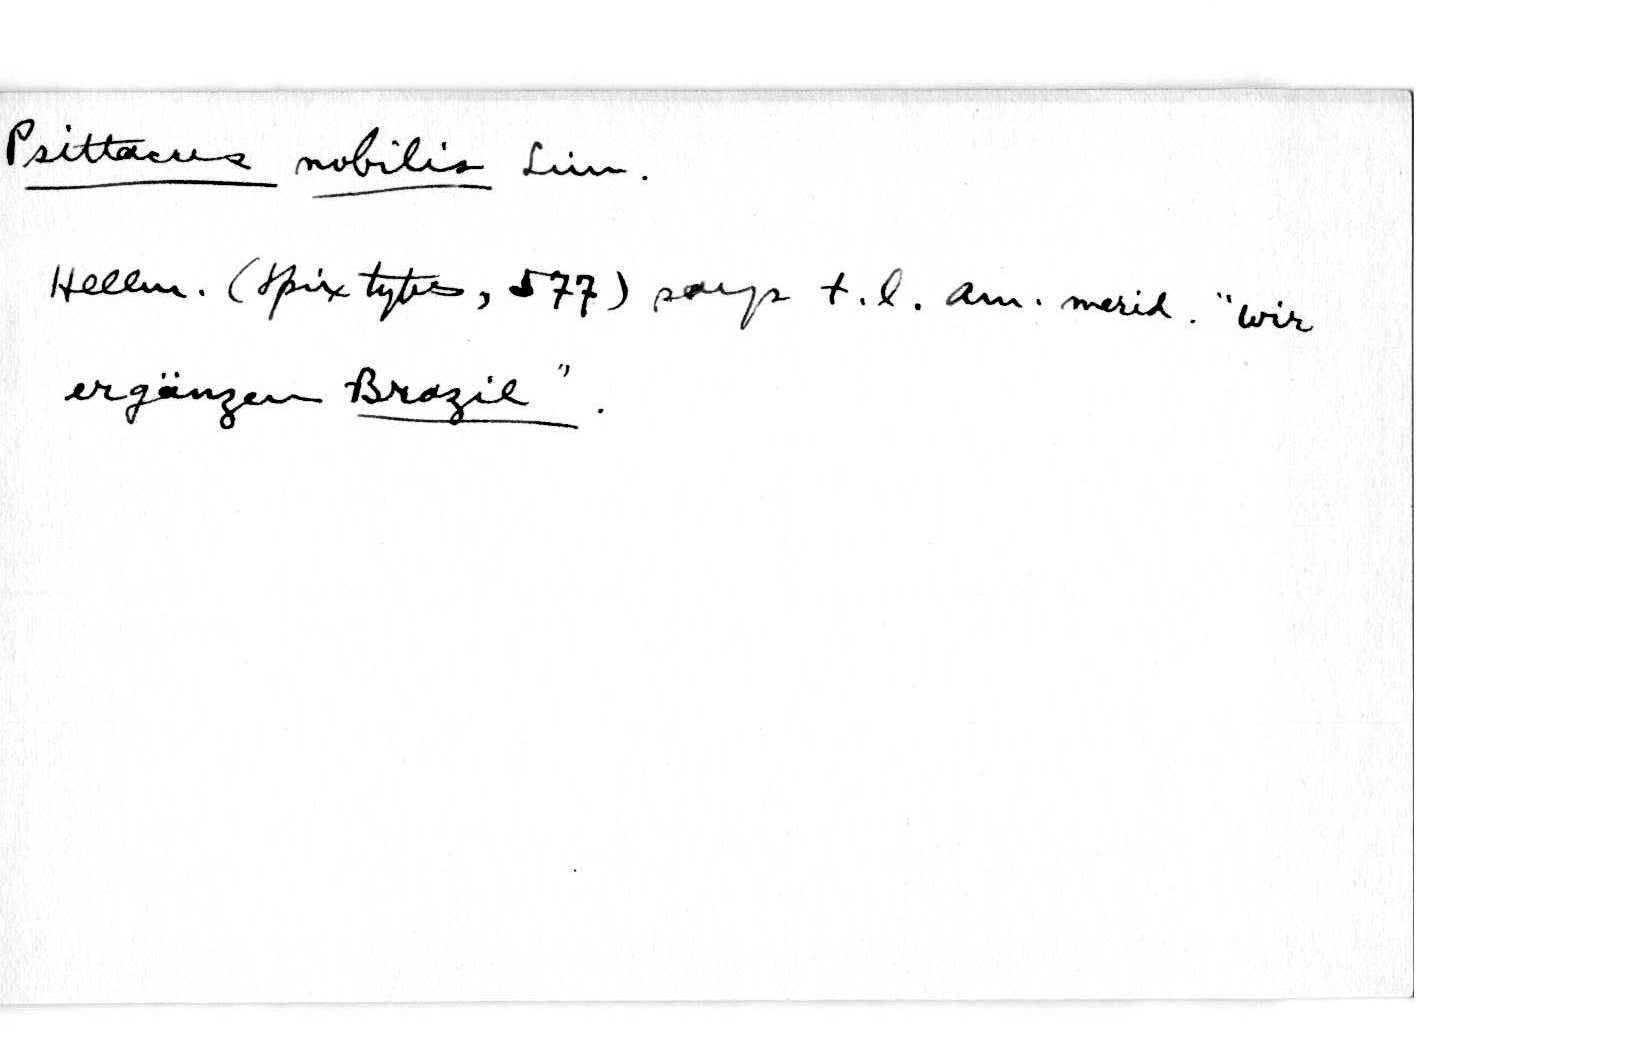 Psittacus nobilis Linn.
Hellm. (Spix types, 577) says t.l. Am. merid. "wir
ergänzen Brazil".